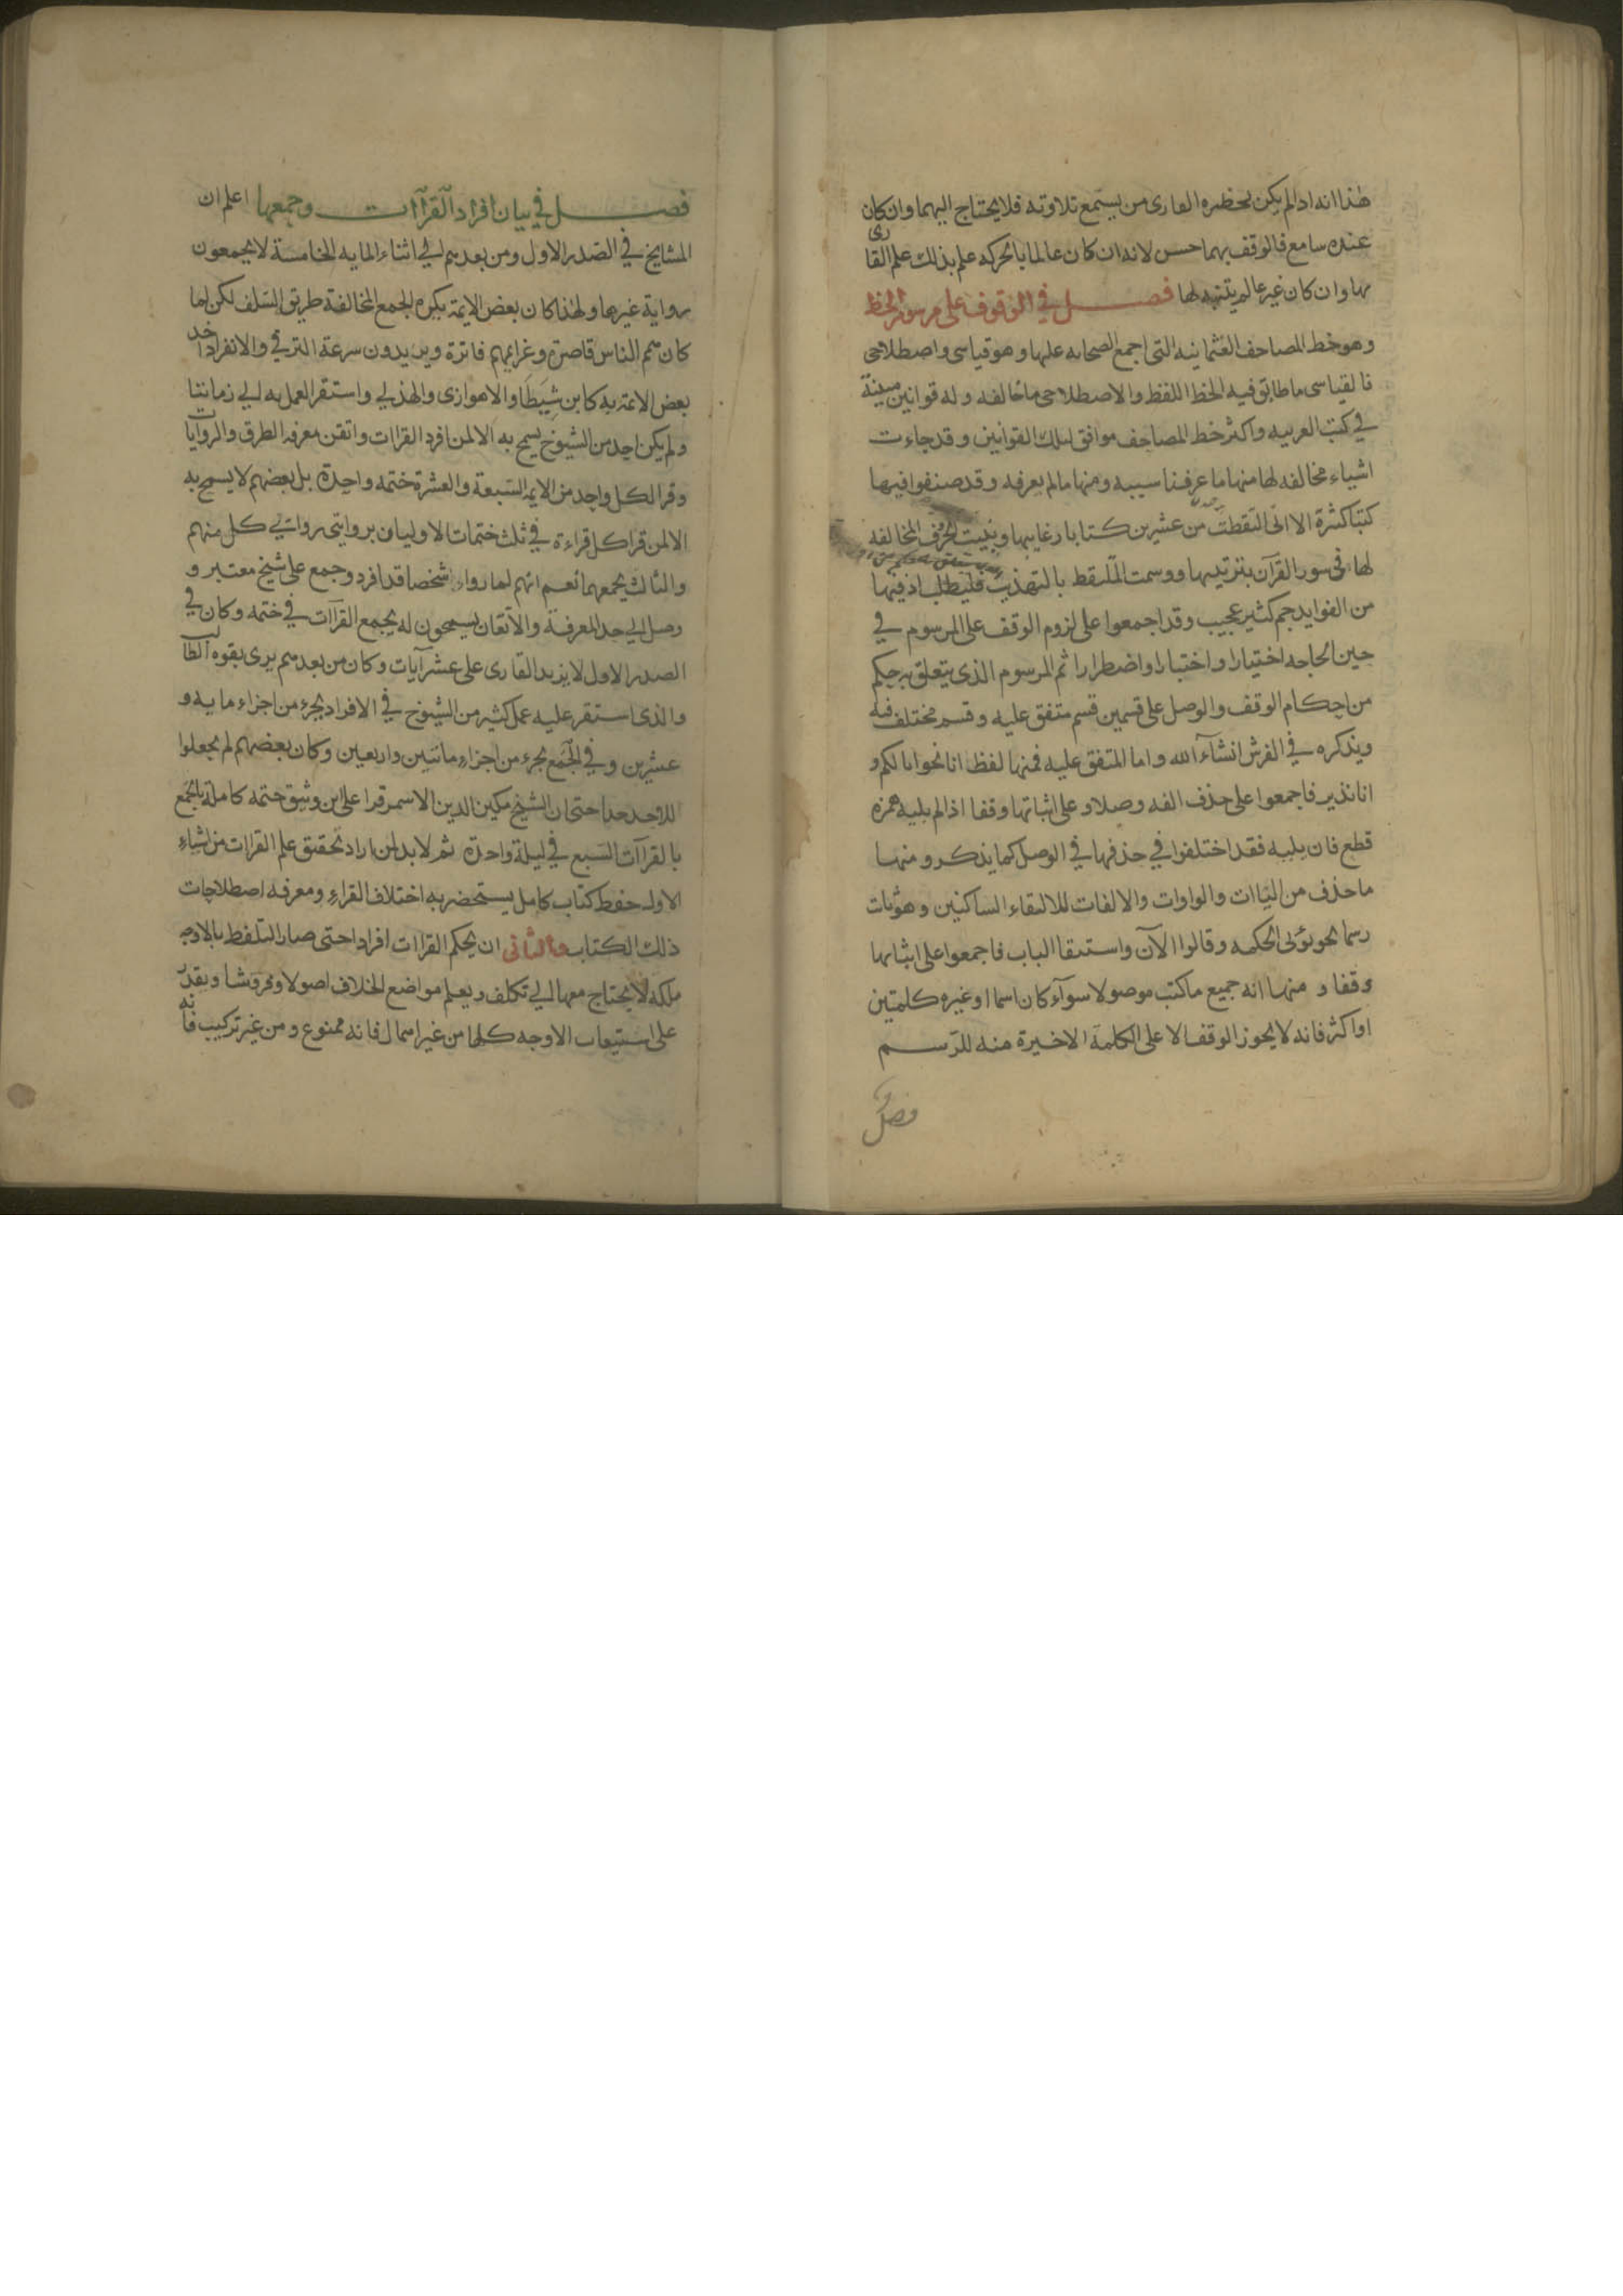 هذا انه اذا لم يكن بحضره القارى من يستمع تلاوته فلا يحتاج اليهما وان كان
عنده سامع فالوقف بهما حسن لانه ان كان عالما بالحركه علم بذلك علم القارى
بها وان كان غير عالم يتنبه لها فصل في الوقوف على مرسوم الخط
وهو خط المصاحف العثمانيه التى اجمع الصحابه عليها وهو قياسى واصطلاحى
فالقياسى ما طابق فيه الخط اللفظ والاصطلاحى ما خالفه وله قوانين مبينة
في كتب العربيه واكثر خط المصاحف موافق لتلك القوانين وقد جاءت
اشياء مخالفه لها منها ما عرفنا سببه ومنها ما لم يعرفه وقد صنفوا فيها
كتبا كثيرة الا انى التقطت من عشرين كتابا رغايبها وبينت الحرف المخالفه
لها فى سور القرآن بترتيبها ووسمت الملتقط بالتهذيب فليطلب اذ فيها
من الفوايد جم كثير عجيب وقد اجمعوا على لزوم الوقف على المرسوم في
حين الحاجه اختيارا واختبارا واضطرارا ثم المرسوم الذى يتعلق به حكم
من احكام الوقف والوصل على قسمين قسم متفق عليه وقسم مختلف فيه
ويذكره في الفرش انشآء الله واما المتفق عليه فمنها لفظ انا نحو انا لكم و
انا نذير فاجمعوا على حذف الفه وصلا وعلى اثباتها وقفا اذا لم يليه همزه
قطع فان يليه فقد اختلفوا في حذفها في الوصل كما يذكر ومنها
ما حذف من اليآات والواوات والالفات للالتقاء الساكنين وهو ثابت
رسما نحو يؤتى الحكمه وقالوا الآن واستبقا الباب فاجمعوا على اثباتها
وقفا و منها انه جميع ما كتب موصولا سوآء كان اسما او غيره كلمتين
او اكثر فانه لا يجوز الوقف الا على الكلمة الاخيرة منه للرسم
فصل
فصل في بيان افراد القرآات وجمعها اعلم ان
المشايخ في الصدر الاول ومن بعدهم الي اثناء المايه الخامسة لا يجمعون
رواية غيرها ولهذا كان بعض الايمة يكره الجمع لمخالفة طريق السلف لكن لما
كان همم الناس قاصرة وعزايمهم فاترة ويريدون سرعة الترقي والانفراد اخذ
بعض الايمة به كابن شيطا والاهوازى والهذلي واستقر العمل به الي زماننا
ولم يكن احد من الشيوخ يسمح به الا لمن افرد القراات واتقن معرفه الطرق والروايات
وقرا لكل واحد من الايمه السبعة والعشرة ختمه واحدة بل بعضهم لا يسمح به
الا لمن قرا كل قراءة في ثلث ختمات الاوليان بروايتى كل منهم
والثالث يجمعهما نعم انهم لما رواء شخصا قد افرد وجمع على شيخ معتبر و
وصل الي حد المعرفة والاتقان يسمحون له بجمع القرآات في ختمه وكان في
الصدر الاول لا يزيد القارى على عشر آيات وكان من بعدهم يرى بقوه الطالب
والذى استقر عليه عمل كثير من الشيوخ في الافراد بجزء من اجزاء مايه و
عشرين وفي الجمع بجزء من اجزاء ماتين واربعين وكان بعضهم لم يجعلوا
للاخذ حدا حتى ان الشيخ مكين الدين الاسمر قرا على ابن وثيق ختمه كاملة بالجمع
بالقرآات السبع في ليلة واحدة ثم لا بد لمن اراد تحقيق علم القراات من اشياء
الاول حفظ كتاب كامل يستحضر به اختلاف القراء ومعرفه اصطلاحات
ذلك الكتاب والثانى ان يحكم القراات افرادا حتى صار التلفظ بالاوجه
ملكة لا يحتاج معها الي تكلف ويعلم مواضع الخلاف اصولا وفروشا ويقدر
على استيعاب الاوجه كلها من غير اهمال فانه ممنوع ومن غير تركيب فانه